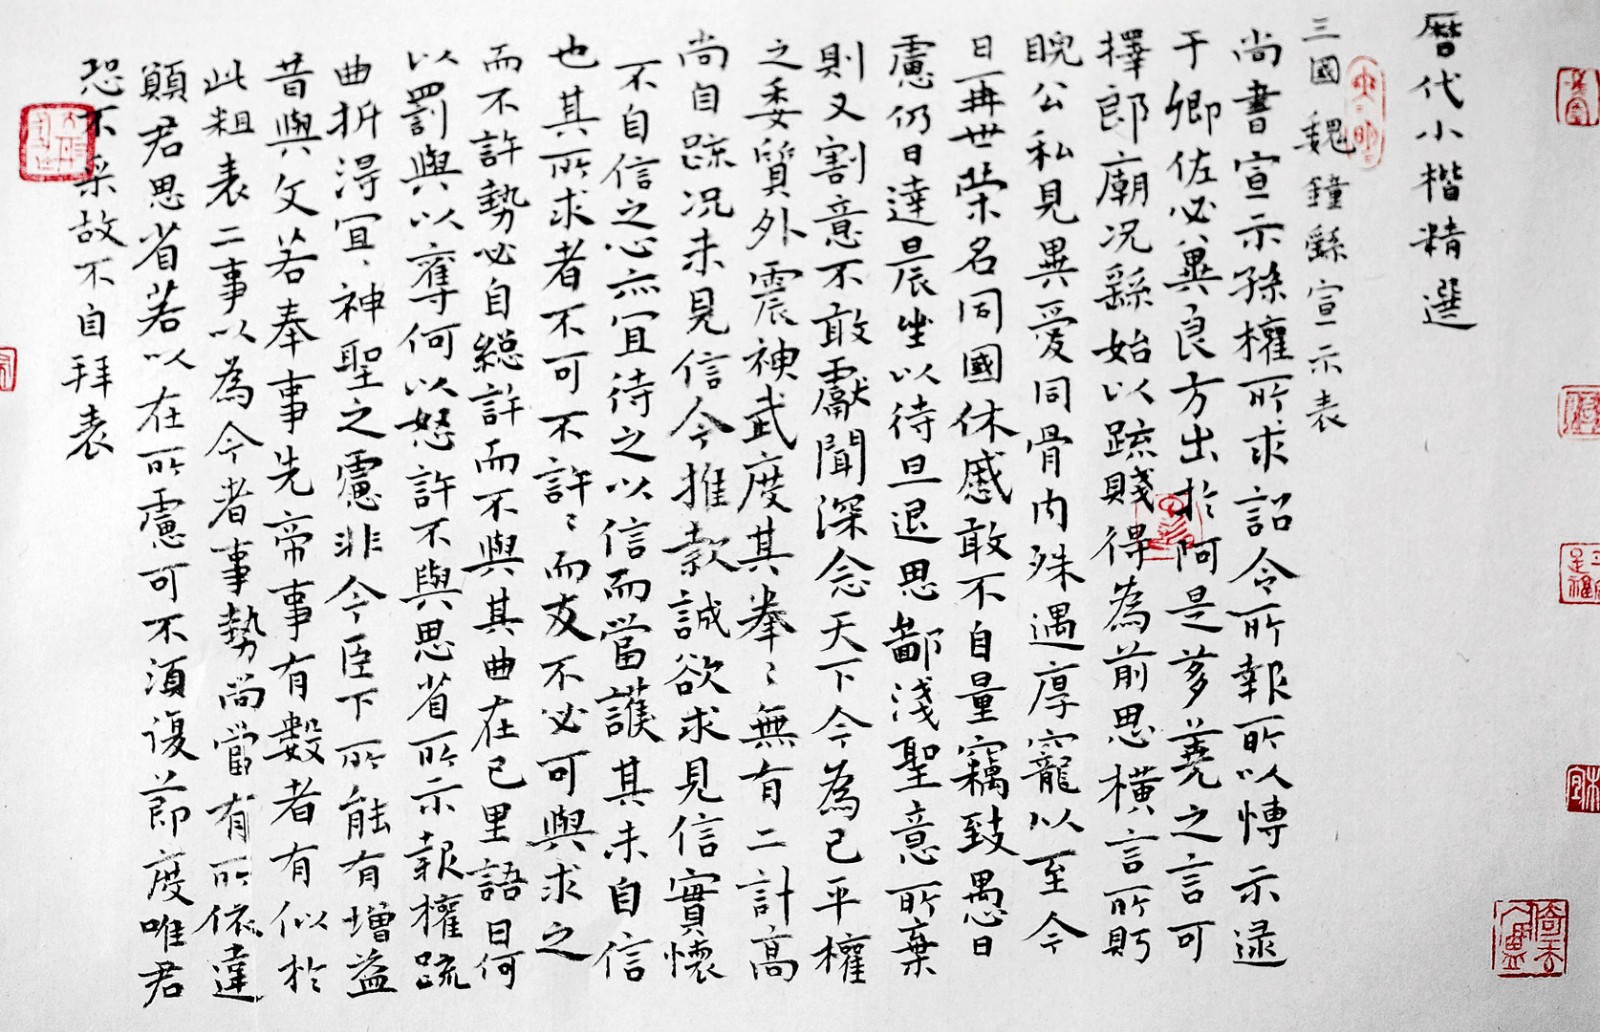 暦代小楷精選
三國魏鐘繇宣示表
尚書宣示孫權所求詔令所報所以博示逮
于卿佐必冀良方出於阿是芻蕘之言可
擇郎廟况繇始以疏賤得為前思横言所盱
睨公私見異愛同骨肉殊遇厚寵以至今
日再世荣名同國休慼敢不自量竊致愚日
慮仍日達晨坐以待旦退思鄙淺聖意所棄
則又割意不敢獻聞深念天下今為已平權
之委質外震神武度其拳〻無有二計高
尚自疏况未見信今推款誠欲求見信實懷
不自信之心亦宜待之以信而當護其未自信
也其所求者不可不許〻而反不必可與求之
而不許勢必自絕許而不與其曲在己里語曰何
以罰與以奪何以怒許不與思省所示報權疏
曲折得宜〻神聖之慮非今臣下所能有增益
昔與文若奉事先帝事有數者有似於
此粗表二事以為今者事勢尚當有所依違
願君思省若以在所慮可不須復節度唯君
恐不采故不自拜表